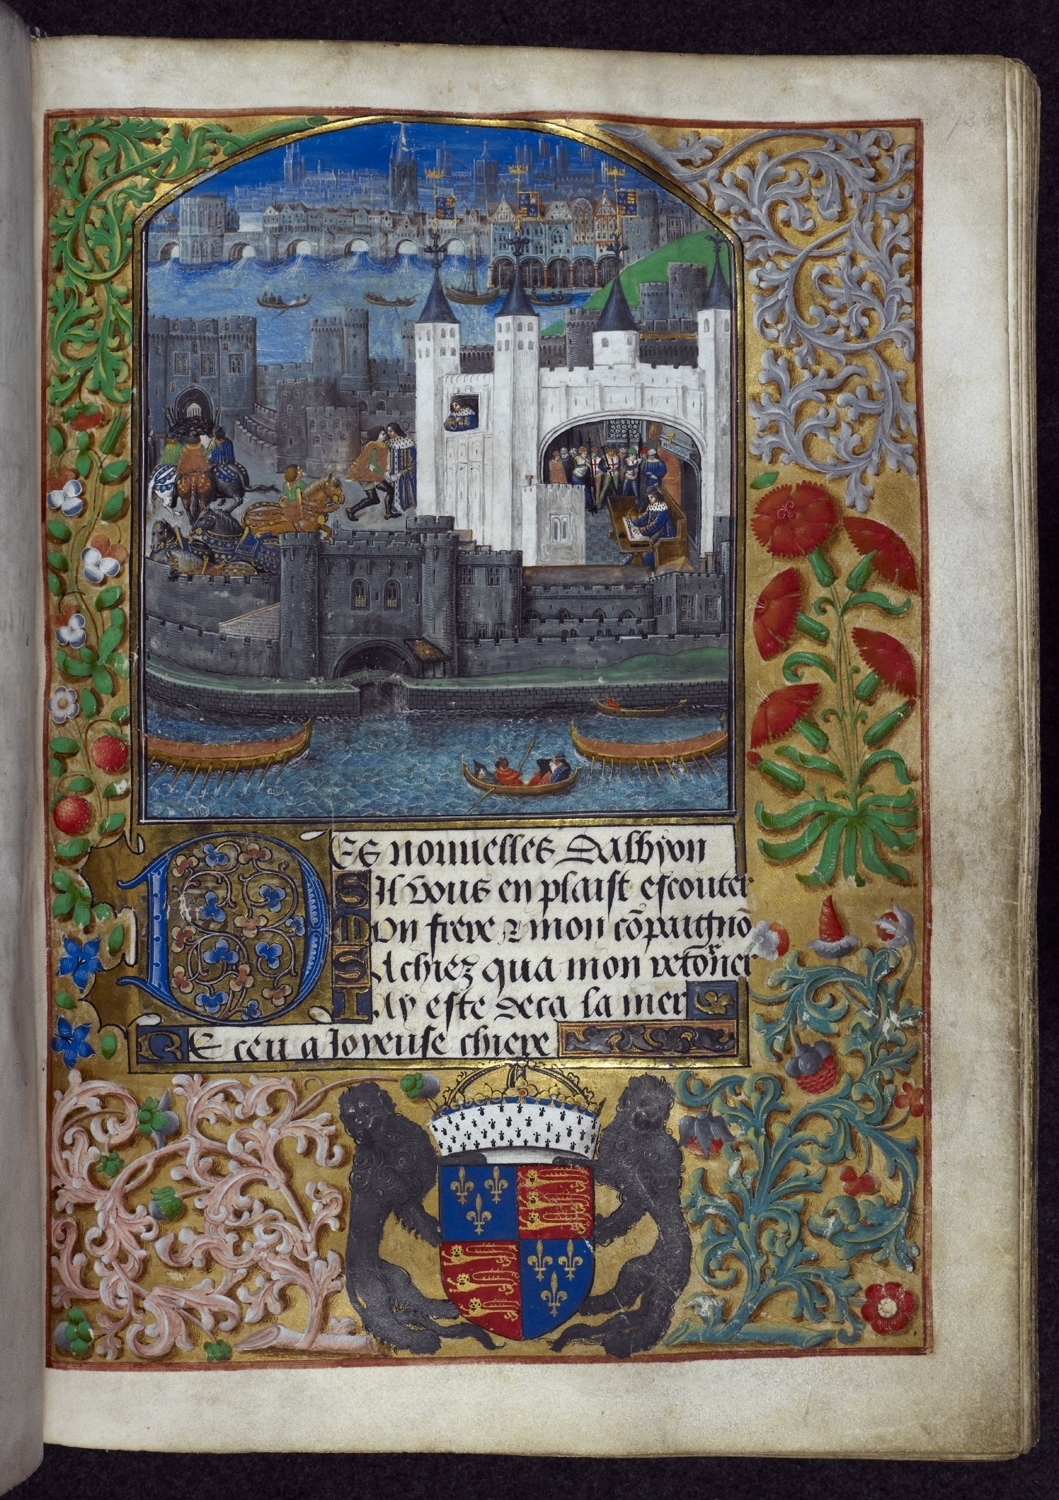 Des nouuelles Dalbyon
Sil vous en plaist escouter
Mon frere & mon cōpaignō
Sachiez qua mon retoʳner
Iay este deca la mer
Receu a Joyeuse chiere